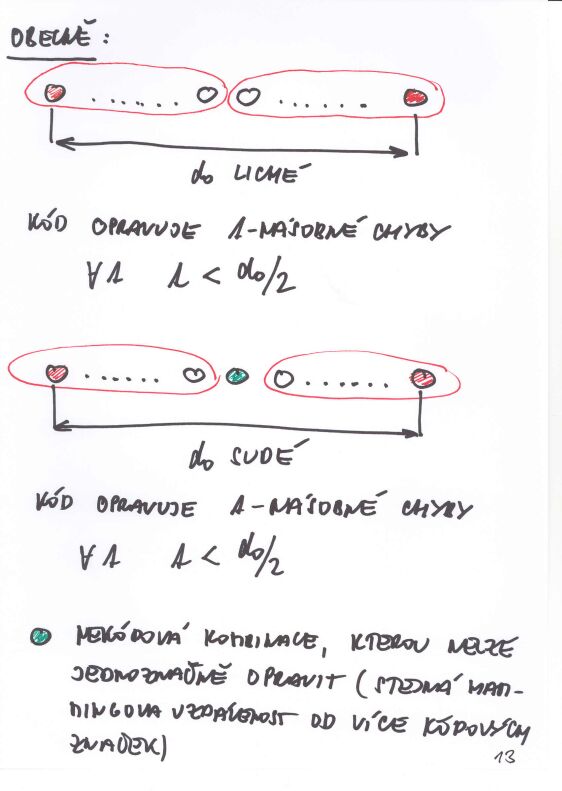 OBECNĚ:
do LICHÉ
KÓD OPRAVUJE 1-NÁSOBNÉ CHYBY
∀1 1 < do/2
do SUDÉ
KÓD OPRAVUJE 1-NÁSOBNÉ CHYBY
∀1 1 < do/2
NEKÓDOVÁ KOMBINACE, KTEROU NELZE
JEDNOZNAČNĚ OPRAVIT (STEJNÁ HAM-
MINGOVA VZDÁLENOST OD VÍCE KÓDOVÝCH
ZNAČEK)
13